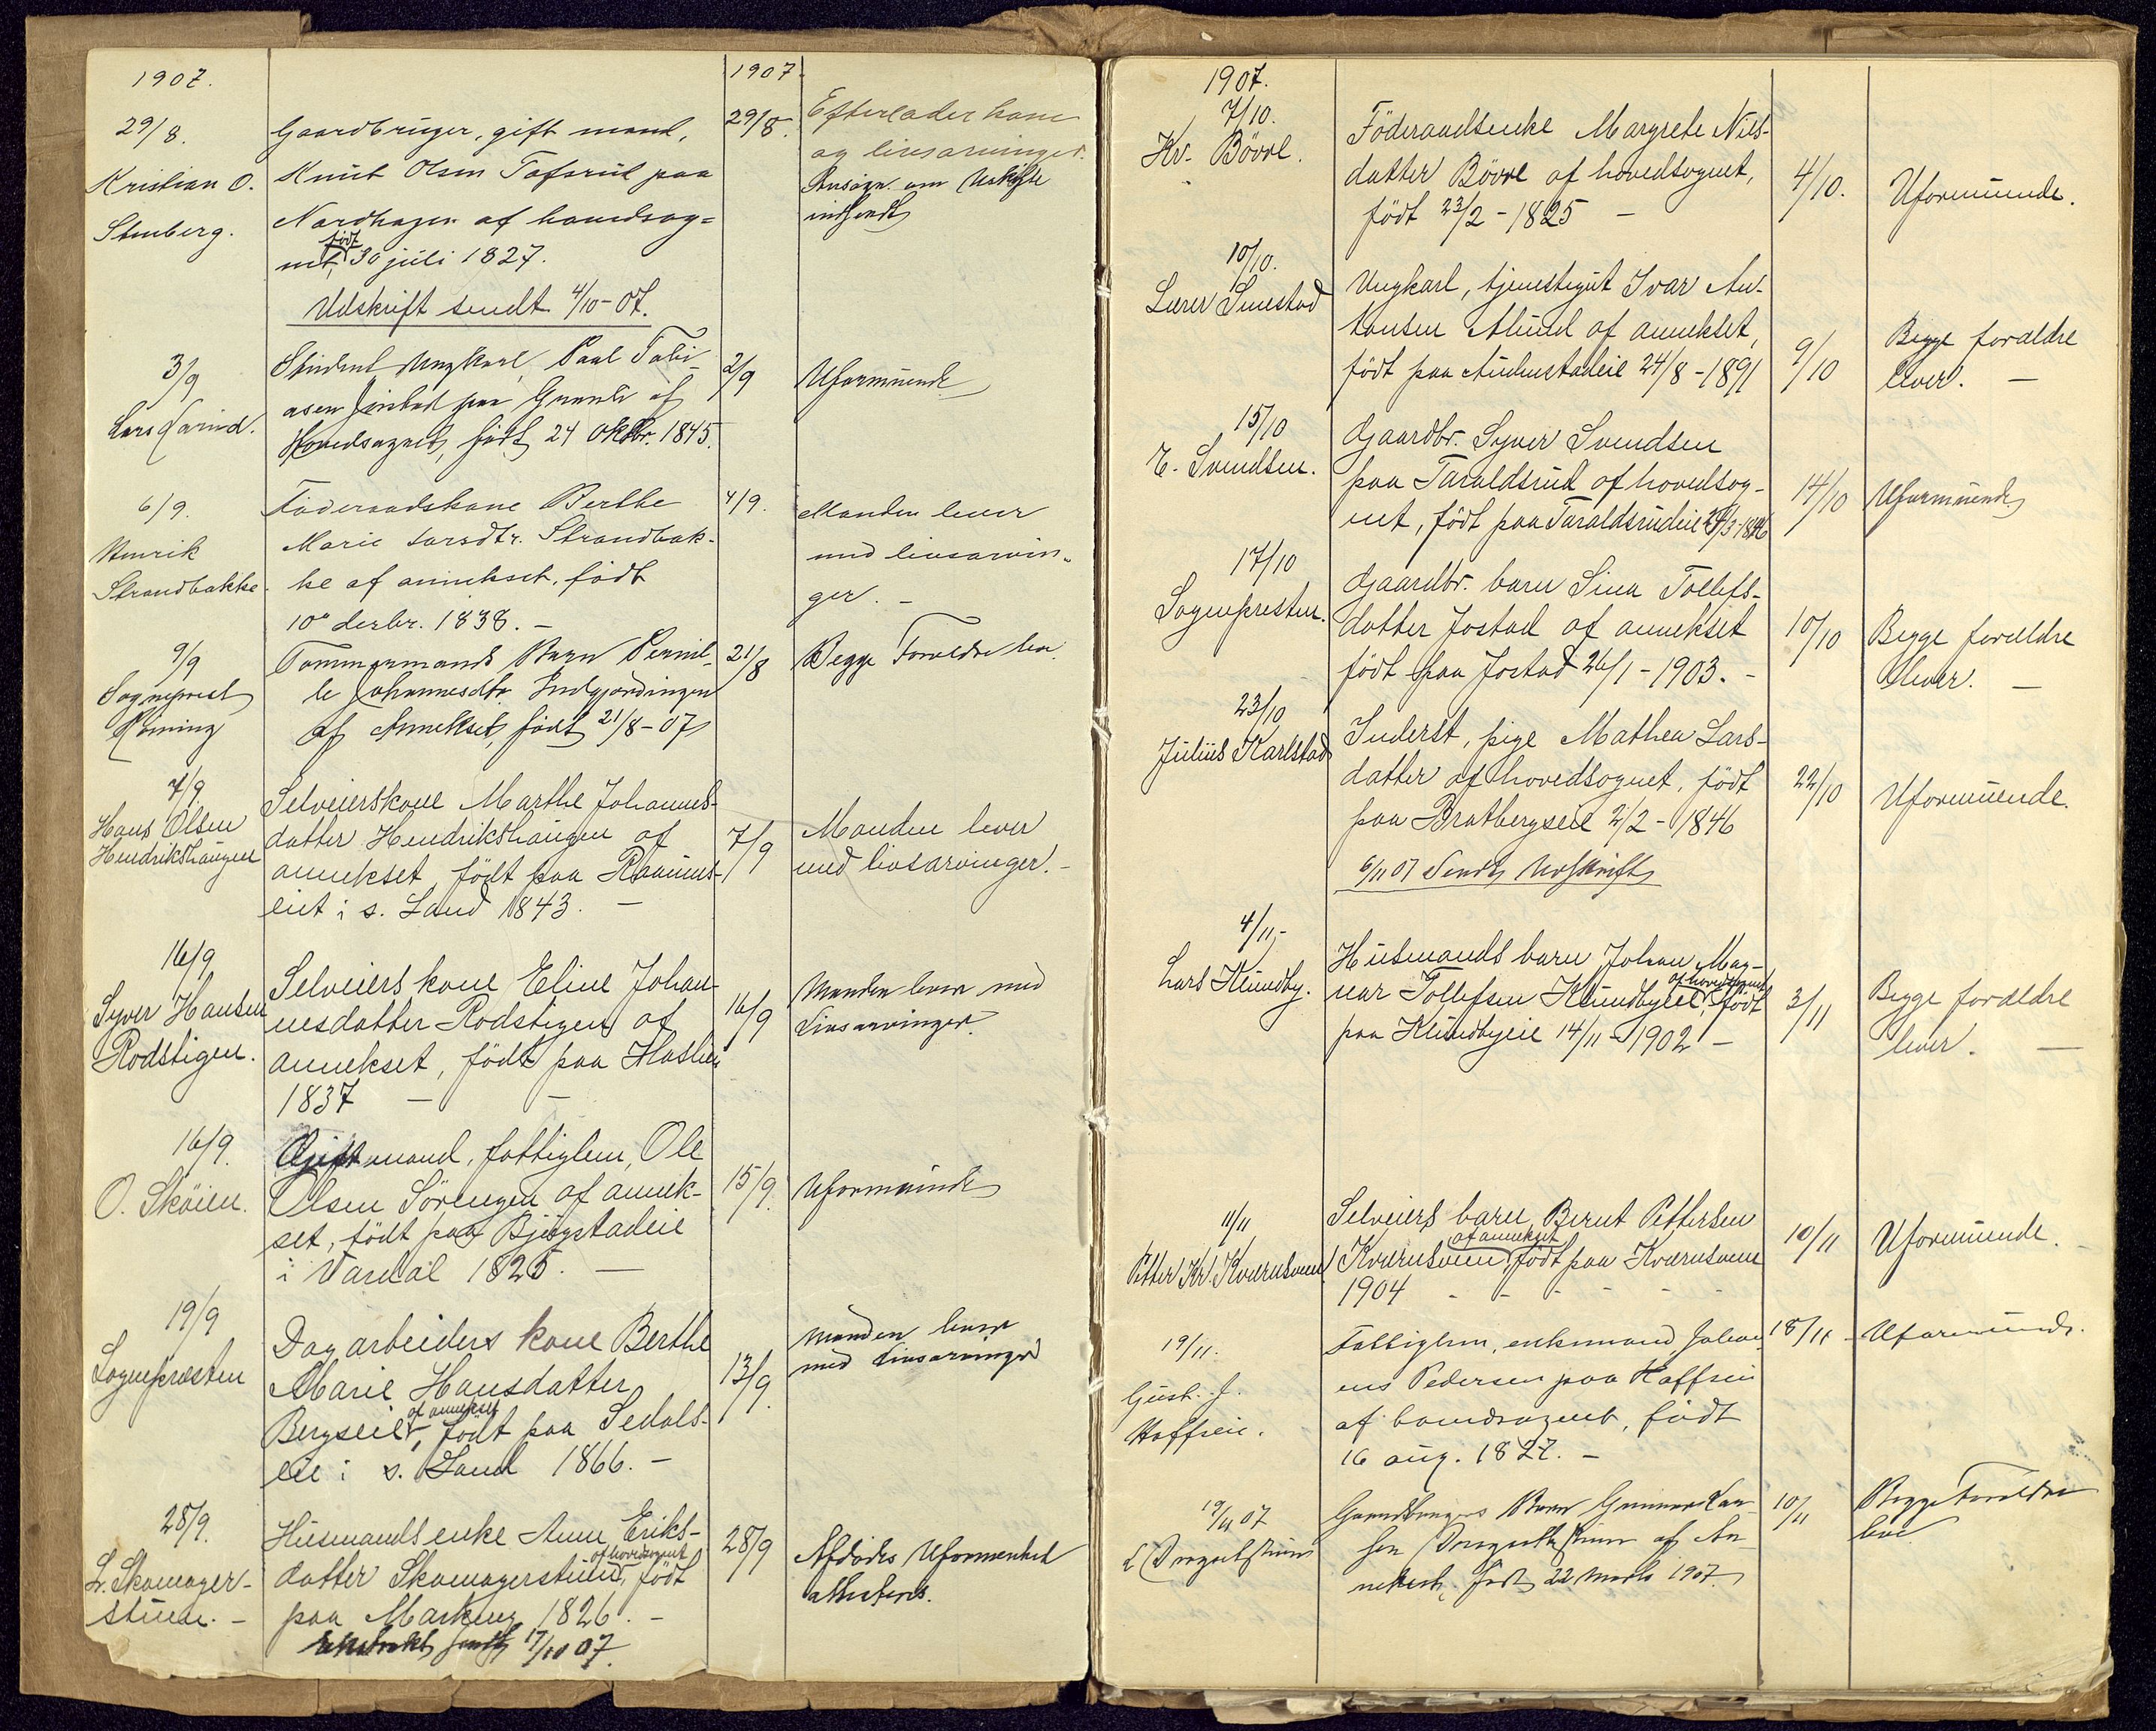 1907.
29/8.
Kristian O.
Stenberg.
Gaardbruger, gift mand,
Knut Olsen Tofsrud paa
Nordhagen af hovedsog-
net, født 30 juli 1827.
Udskrift sendt 4/10-07.
1907
29/8.
Efterlader kone
og livsarvinger.
Ansøgn. om Uskifte
indsendt
3/9
Lars
Student Ungkarl, Paul Tobi-
asen paa af
Hovedsognet, født 24 Oktbr. 1845.
2/9
Uformuende
6/9.
Henrik
Strandbakke.
Føderaadskone Berthe
Marie Larsdtr. Strandbak-
ke af annekset, født
10de decbr. 1838. -
4/9.
Manden lever
med livsarvin-
ger. -
9/9
Sogneprest
Tømmermands Barn Pernil-
le Johannesdtr. Indgjordingen
af Annekset, født 21/8-07
21/8
Begge Forældre lev.
7/9
Hans Olsen
Hendrikshaugen
Selveierskone Marthe Johannes-
datter Hendrikshaugen af
annekset, født paa
eiet i s. Land 1843. -
7/9
Manden lever
med livsarvinger. -
16/9
Syver Hansen
Rodstigen.
Selveiers kone Eline Johan-
nesdatter Rodstigen af
annekset, født paa
1837 - -
16/9
Manden lever med
Livsarvinger.
16/9.
O. Skøien.
Gift mand, fattiglem, Ole
Olsen Sørengen af annek-
set, født paa
i Vardal 1825. -
15/9.
Uformuende
19/9
Sognepresten
Dagarbeiders kone Berthe
Marie Hansdatter
Bergseie, af annekset født paa Sedals-
eie i s. Land 1866. -
13/9.
Manden lever
med Livsarvinger
28/9.
L. Skomager-
stuen. -
Husmandsenke Anne Eriks-
datter Skomagerstuen, af hovedsognet født
paa Markeng 1826. -
sendt 17/10 07.
28/9
Afdødes Uformuenhed
attesteres.
1907.
7/10.
Kr. Bøvre.
Føderaadsenke Margrete Nils-
datter Bøvre af hovedsognet,
født 23/2-1825 -
4/10.
Uformuende.
10/10.
Lærer Smestad
Ungkarl, tjenestegut Ivar An-
tonsen Alund af annekset,
født paa 24/8-1891
9/10
Begge forældre
lever. -
15/10
E. Svendsen.
Gaardbr. Syver Svendsen
paa Taraldsrud af hovedsog-
net, født paa Taraldsrudeie
14/10
Uformuende
17/10
Sognepresten.
Gaardbr. barn Sina Tollefs-
datter Jostad af annekset
født paa Jostad 26/1-1903. -
10/10
Begge forældre
lever. -
23/10
Julius Karlstad
Inderst, pige Mathea Lars-
datter af hovedsognet, født
paa Bratbergseie 2/2-1846
6/11 07 Sendt Udskrift
22/10
Uformuende.
4/11
Lars Klundby.
Husmands barn Johan Mag-
nar Tollefsen Klundbyeie, af hovedsognet født
paa Klundbyeie 14/11-1902 -
3/11
Begge forældre
lever. -
11/11
Petter Kr. Kværnsveen
Selveiers barn Bernt Pettersen
Kværnsveen, af annekset født paa Kværnsveen
1904 - - - - -
10/11
Uformuende. -
19/11.
Gust. J.
Hoffseie.
Fattiglem, enkemand, Johan-
nes Pedersen paa Hoffseie
af hovedsognet, født
16 aug. 1827. -
18/11
Uformuende.
19/11 07
Gaardbrugers Barn Gunnar
sen af An-
nekset, født 22 Marts 1907.
10/11
Begge Forældre
leve